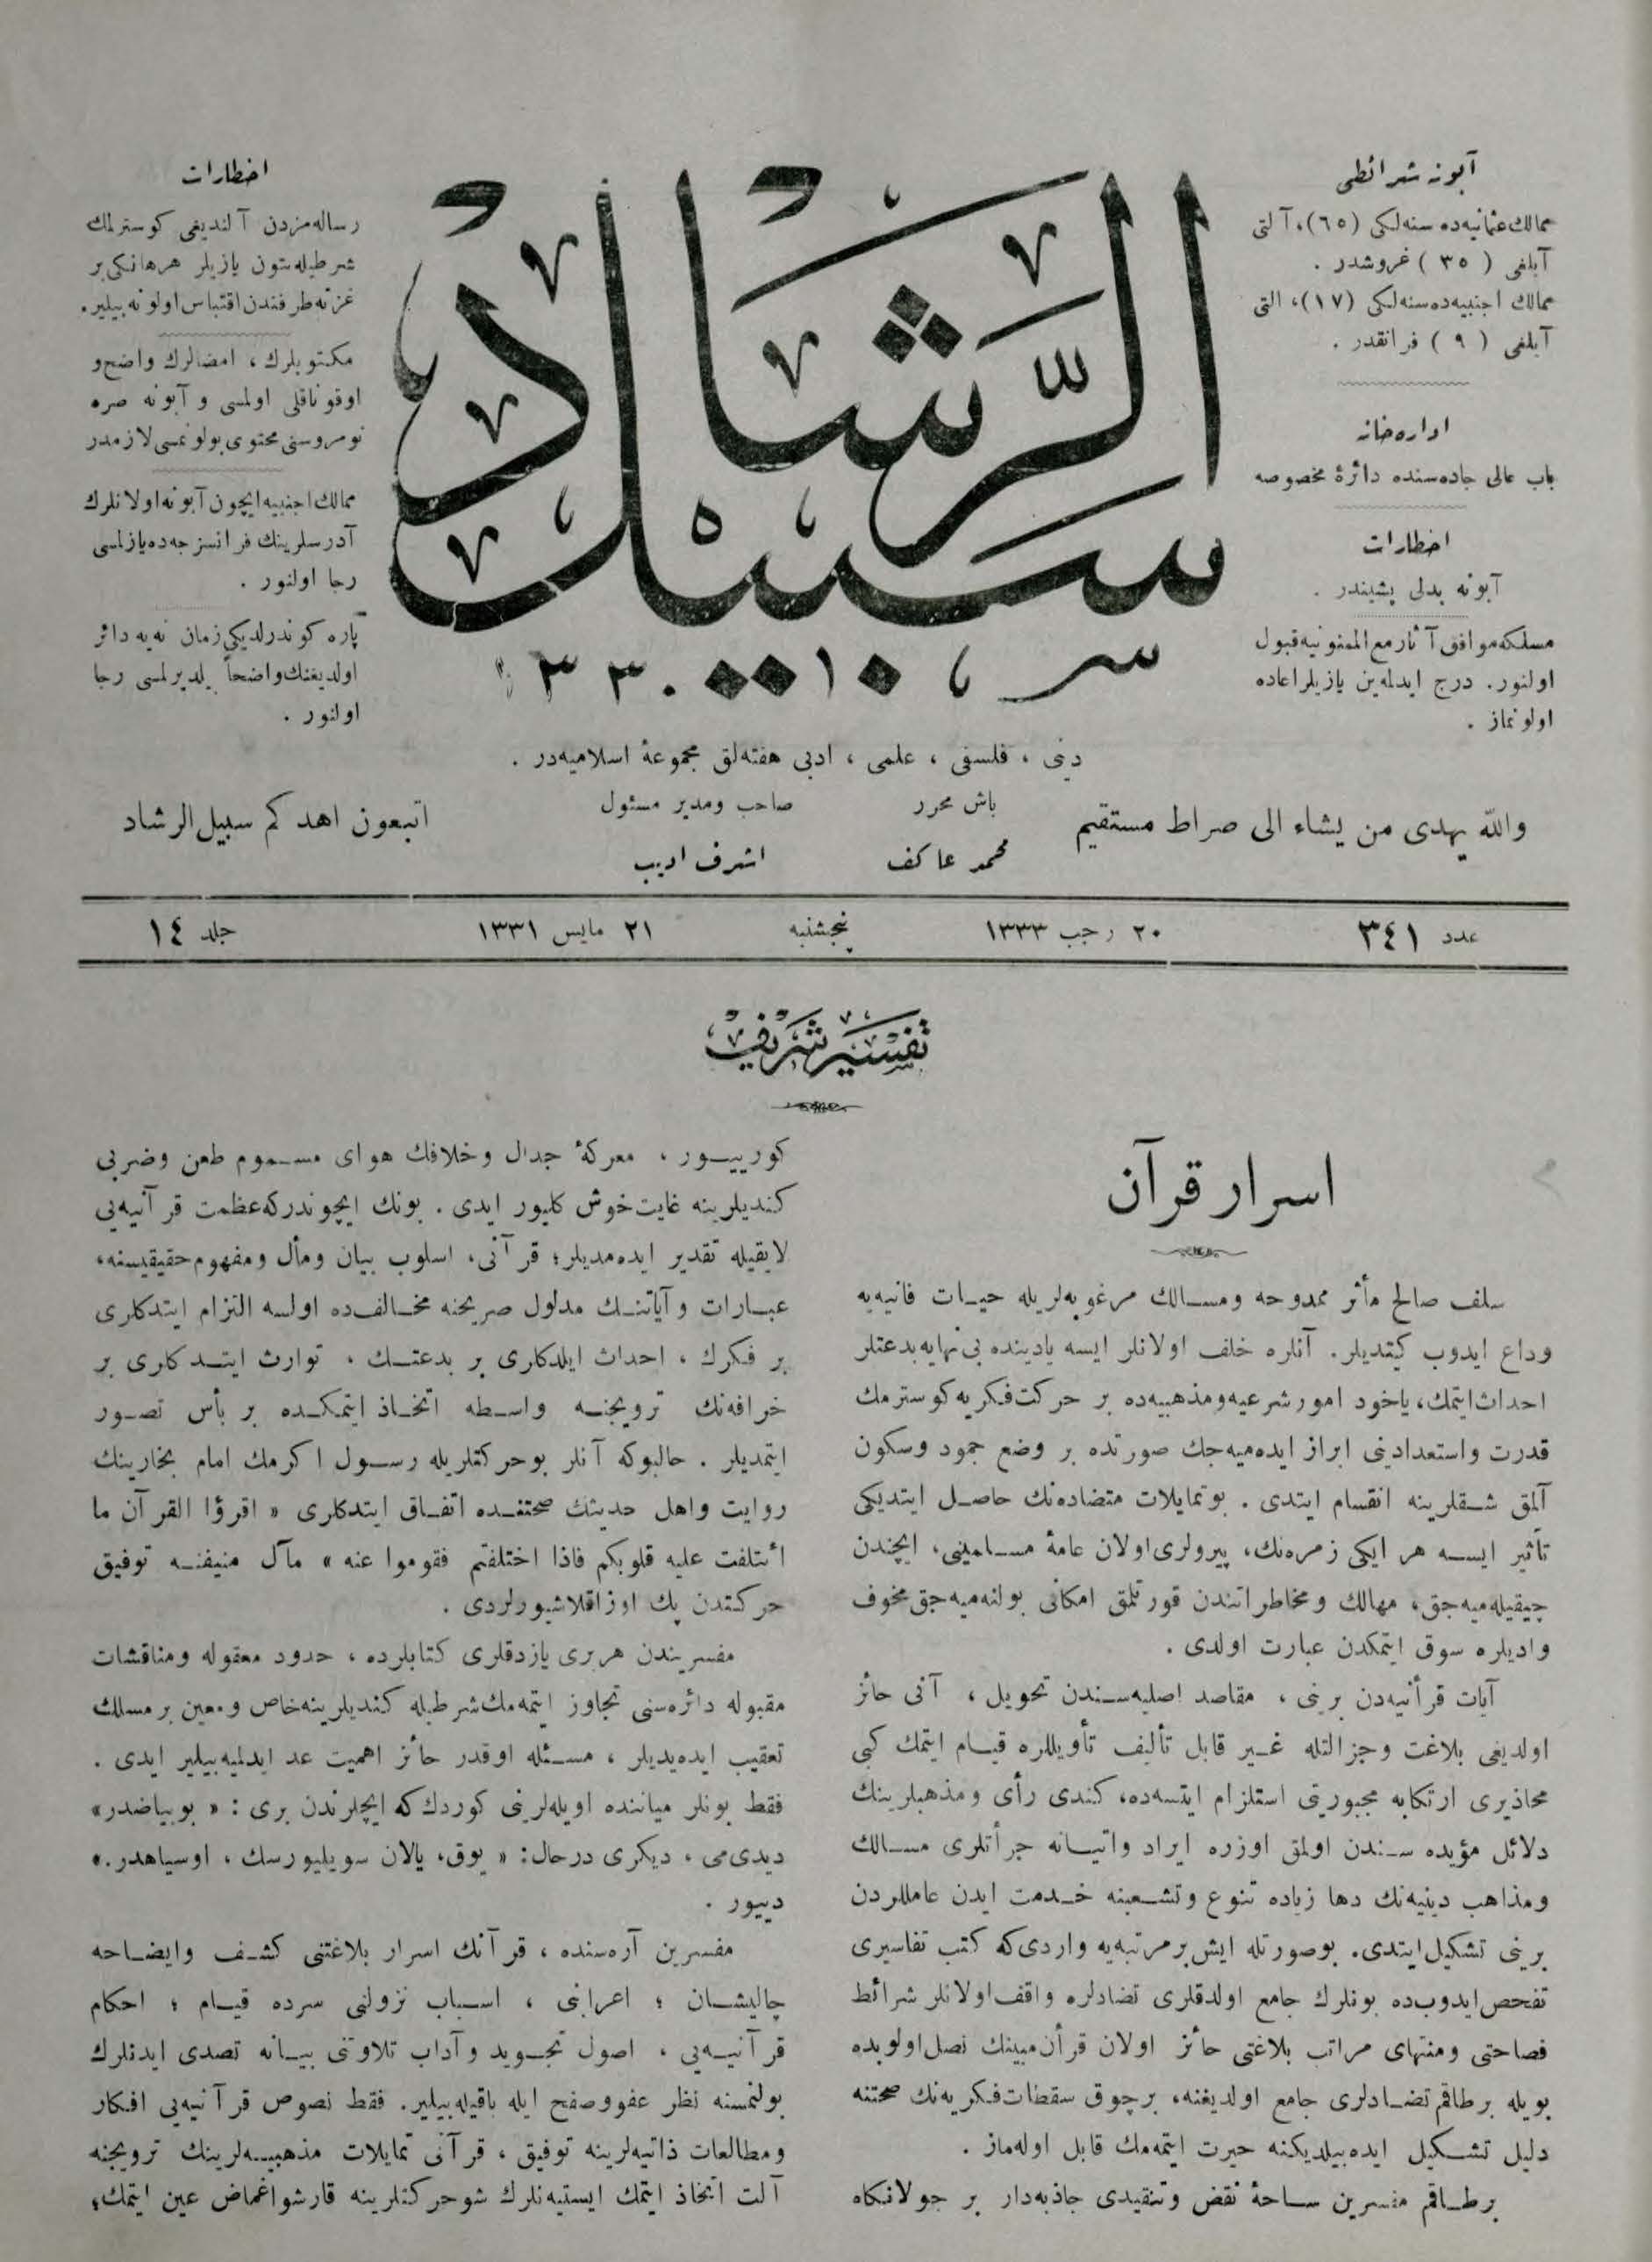 آبونه شرائطى
ممالك عثمانيه‌ده سنه‌لكى (٦٥)، آلتى
آيلغى ( ٣٥ ) غروشدر .
ممالك اجنبيه‌ده سنه‌لكى (١٧)، التى
آيلغى ( ٩ ) فرانقدر .
اداره‌خانه
باب عالى جاده‌سنده دائرهٔ مخصوصه
اخطارات
آبونه بدلى پشيندر .
مسلكه موافق آثار مع الممنونيه قبول
اولنور. درج ايدلمه‌ين يازيلر اعاده
اولونماز .
سبيل الرشاد
اخطارات
رساله‌مزدن آلنديغى كوسترلمك
شرطيله بتون يازيلر هرهانكى بر
غزته طرفندن اقتباس اولونه‌بيلير.
مكتوبلرك ، امضالرك واضح و
اوقوناقلى اولمسى و آبونه صره
نومروسنى محتوى بولونمسى لازمدر
ممالك اجنبيه ايچون آبونه اولانلرك
آدرسلرينك فرانسزجه‌ده يازلمسى
رجا اولنور .
پاره كوندرلديكى زمان نه‌يه دائر
اولديغنك واضحاً بيلديرلمسى رجا
اولنور .
دينى ، فلسفى ، علمى ، ادبى هفته‌لق مجموعهٔ اسلاميه‌در .
والله يهدى من يشاء الى صراط مستقيم
باش محرر
محمد عاكف
صاحب ومدير مسئول
اشرف اديب
اتبعون اهدكم سبيل الرشاد
عدد ٣٤١ ٢٠ رجب ١٣٣٣ پنجشنبه ٢١ مايس ١٣٣١ جلد ١٤
تفسير شريف
اسرار قرآن
سلف صالح مأثر ممدوحه ومسالك مرغوبه‌لريله حيات فانيه‌يه
وداع ايدوب كيتديلر. آنلره خلف اولانلر ايسه يا دينده بى نهايه بدعتلر
احداث ايتمك، ياخود امور شرعيه ومذهبيه‌ده بر حركت فكريه كوسترمك
قدرت واستعدادينى ابراز ايده‌ميه‌جك صورتده بر وضع جمود وسكون
آلمق شقلرينه انقسام ايتدى . بو تمايلات متضاده‌نك حاصل ايتديكى
تأثير ايسه هر ايكى زمره‌نك، پيرولرى اولان عامهٔ مسلمينى، ايچندن
چيقيله‌ميه‌جق، مهالك ومخاطراتندن قورتلمق امكانى بولنه‌ميه‌جق مخوف
واديلره سوق ايتمكدن عبارت اولدى .
آيات قرآنيه‌دن برينى ، مقاصد اصليه‌سندن تحويل ، آنى حائز
اولديغى بلاغت وجزالتله غير قابل تأليف تأويللره قيام ايتمك كبى
محاذيرى ارتكابه مجبوريتى استلزام ايتسه‌ده، كندى رأى ومذهبلرينك
دلائل مؤيده سندن اولمق اوزره ايراد واتيانه جرأتلرى مسالك
ومذاهب دينيه‌نك دها زياده تنوع وتشعبنه خدمت ايدن عامللردن
برينى تشكيل ايتدى. بوصورتله ايش بر مرتبه‌يه واردى كه كتب تفاسيرى
تفحص ايدوب‌ده بونلرك جامع اولدقلرى تضادلره واقف اولانلر شرائط
فصاحتى ومنتهاى مراتب بلاغتى حائز اولان قرآن مبينك نصل اولوبده
بويله برطاقم تضادلرى جامع اولديغنه، برچوق سقطات فكريه‌نك صحتنه
دليل تشكيل ايده‌بيلديكنه حيرت ايتمه‌مك قابل اوله‌ماز .
برطاقم مفسرين ساحهٔ نقض وتنقيدى جاذبه‌دار بر جولانكاه
كورييور ، معركهٔ جدال وخلافك هواى مسموم طعن وضربى
كنديلرينه غايت خوش كليور ايدى . بونك ايچوندركه عظمت قرآنيه‌يى
لايقيله تقدير ايده‌مديلر؛ قرآنى، اسلوب بيان ومآل ومفهوم حقيقيسنه،
عبارات وآياتنك مدلول صريحنه مخالف‌ده اولسه التزام ايتدكلرى
بر فكرك ، احداث ايلدكارى بر بدعتك ، توارث ايتدكارى بر
خرافه‌نك ترويجنه واسطه اتخاذ ايتمكده بر بأس تصور
ايتمديلر . حالبوكه آنلر بوحركتلريله رسول اكرمك امام بخارينك
روايت واهل حديثك صحتنده اتفاق ايتدكلرى « اقرؤا القرآن ما
ائتلفت عليه قلوبكم فاذا اختلفتم فقوموا عنه » مآل منيفنه توفيق
حركتدن پك اوزاقلاشيورلردى .
مفسريندن هربرى يازدقلرى كتابلرده ، حدود معقوله ومناقشات
مقبوله دائره‌سنى تجاوز ايتمه‌مك شرطيله كنديلرينه خاص ومعين بر مسلك
تعقيب ايده‌يديلر ، مسئله اوقدر حائز اهميت عد ايدلميه‌بيلير ايدى .
فقط بونلر مياننده اويله‌لرينى كوردك كه ايچلرندن برى : « بو بياضدر»
ديدى‌مى ، ديكرى درحال: « يوق، يالان سويليورسك ، او سياهدر.»
دييور .
مفسرين آره‌سنده ، قرآنك اسرار بلاغتنى كشف وايضاحه
چاليشان ؛ اعرابنى ، اسباب نزولنى سرده قيام ؛ احكام
قرآنيه‌يى ، اصول تجويد وآداب تلاوتى بيانه تصدى ايدنلرك
بولنمسنه نظر عفووصفح ايله باقيله‌بيلير. فقط نصوص قرآنيه‌يى افكار
ومطالعات ذاتيه‌لرينه توفيق ، قرآنى تمايلات مذهبيه‌لرينك ترويجنه
آلت اتخاذ ايتمك ايستيه‌نلرك شوحركتلرينه قارشو اغماض عين ايتمك؛